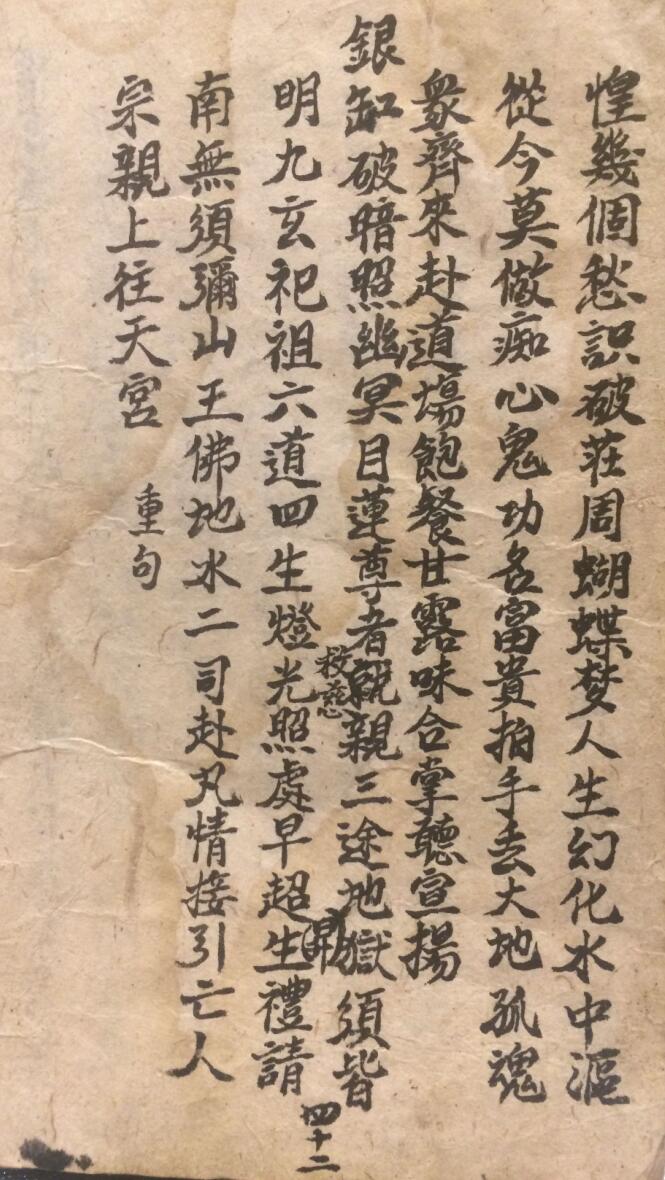 惶幾個愁識破莊周蝴蝶梦人生幻化水中漚
從今莫做痴心鬼功名富貴拍手去大地孤魂
衆齊來赴道場飽餐甘露味合掌聽宣揚
銀缸破暗照幽冥目蓮尊者親三途地獄須皆
救慈
明九玄祀祖六道四生燈光照處早超生禮請
南無須彌山王佛地水二司赴凡情接引亡人
宗親上往天宮 重句
四十二